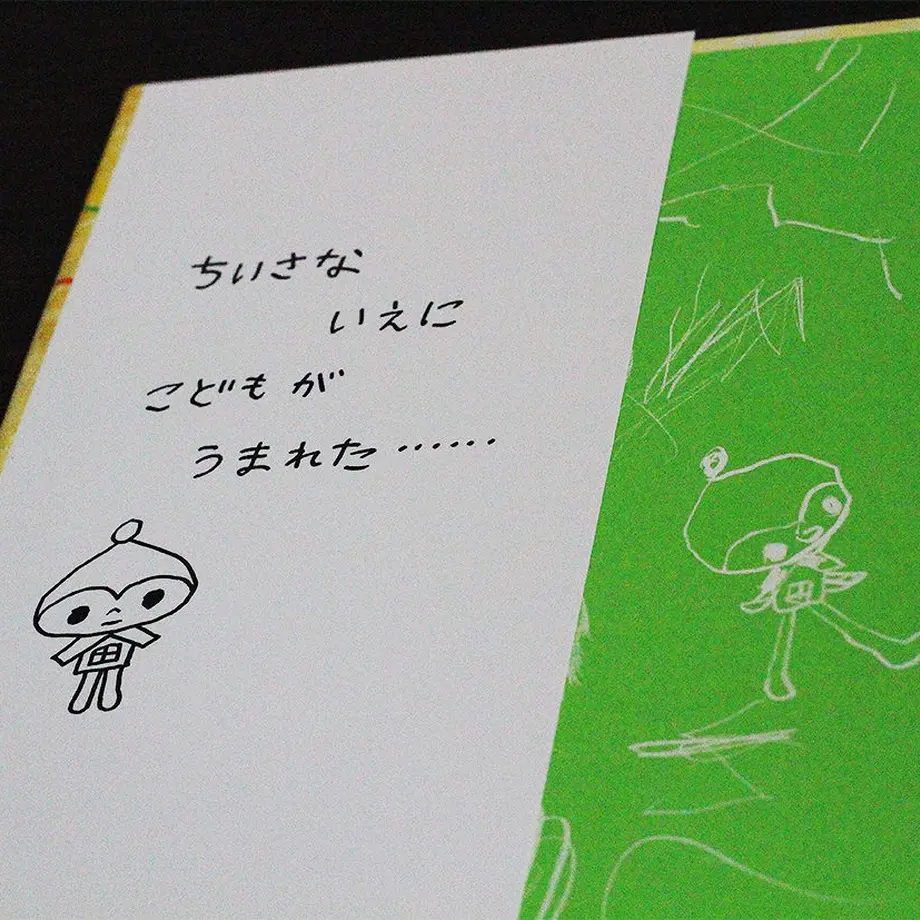 ちいさな
いえに
こどもが
うまれた……